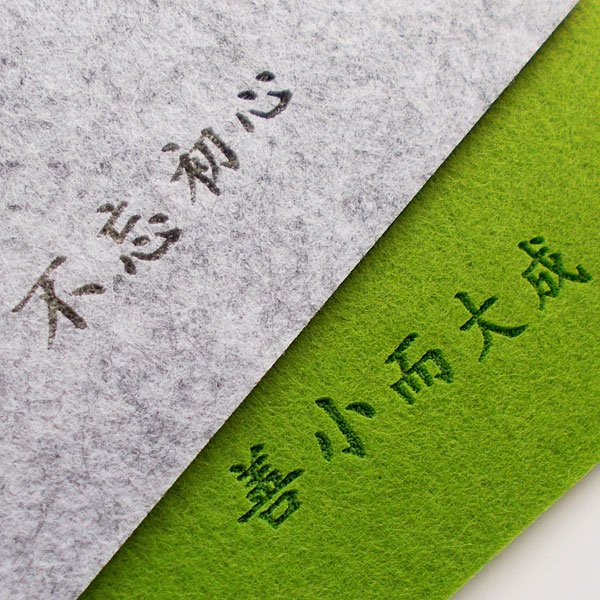 不忘初心
善小而大成